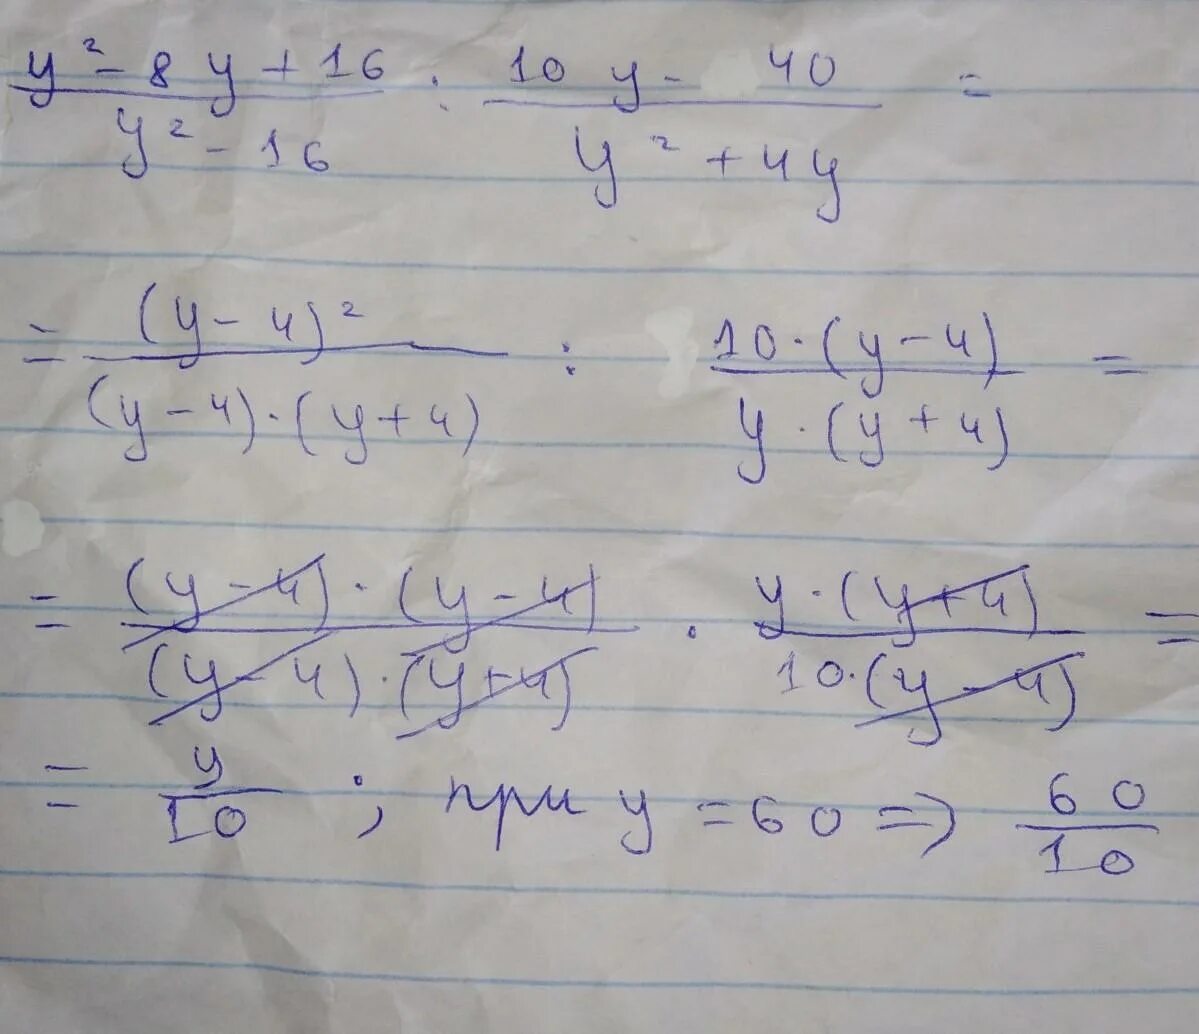 y² - 8y + 16 / y² - 16 : 10y - 40 / y² + 4y =
= (y - 4)² / (y - 4) · (y + 4) : 10 · (y - 4) / y · (y + 4) =
= (y - 4) · (y - 4) / (y - 4) · (y + 4) · y · (y + 4) / 10 · (y - 4) =
= y / 10 ; при y = 60 => 60 / 10